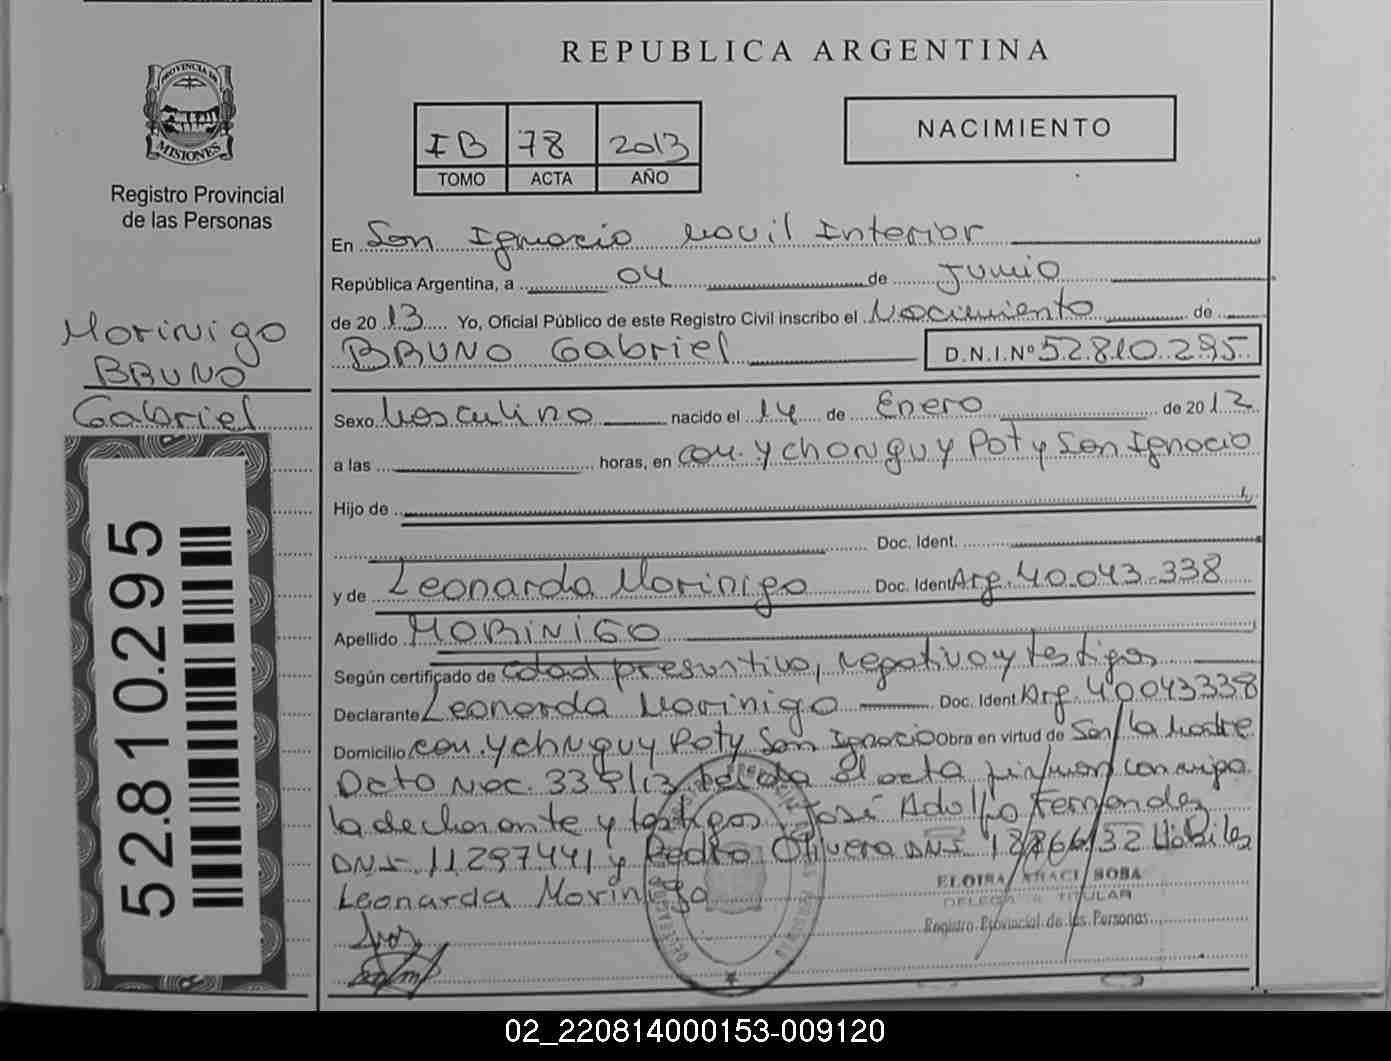 REPUBLICA ARGENTINA
PROVINCIA DE
MISIONES
Registro Provincial
de las Personas
IB 78 2013
TOMO ACTA AÑO
NACIMIENTO
En San Ignacio Movil Interior
República Argentina, a 04 de Junio
de 2013 Yo, Oficial Público de este Registro Civil inscribo el Nacimiento de
BRUNO Gabriel D.N.I.Nº 52.810.295
Morinigo
BRUNO
Gabriel
52.810.295
Sexo Masculino nacido el 14 de Enero de 2012
a las horas, en Com. Ychonguy Poty San Ignacio
Hijo de
Doc. Ident.
y de Leonarda Morinigo Doc. Ident Arg. 40.043.338
Apellido MORINIGO
Según certificado de edad presuntiva, negativo y testigos
Declarante Leonarda Morinigo Doc. Ident. Arg. 40043338
Domicilio com. Ychnguy Poty San Ignacio Obra en virtud de Ser la Madre
Dcto Nac. 339/13 el acta firman conmigo
la declarante y testigos José Adolfo Fernandez
DNI 11297441 y Pedro Olivera DNI Hábiles
Leonarda Morinigo
ELOISA ARACI SOSA
DELEGADA TITULAR
Registro Provincial de las Personas
02_220814000153-009120